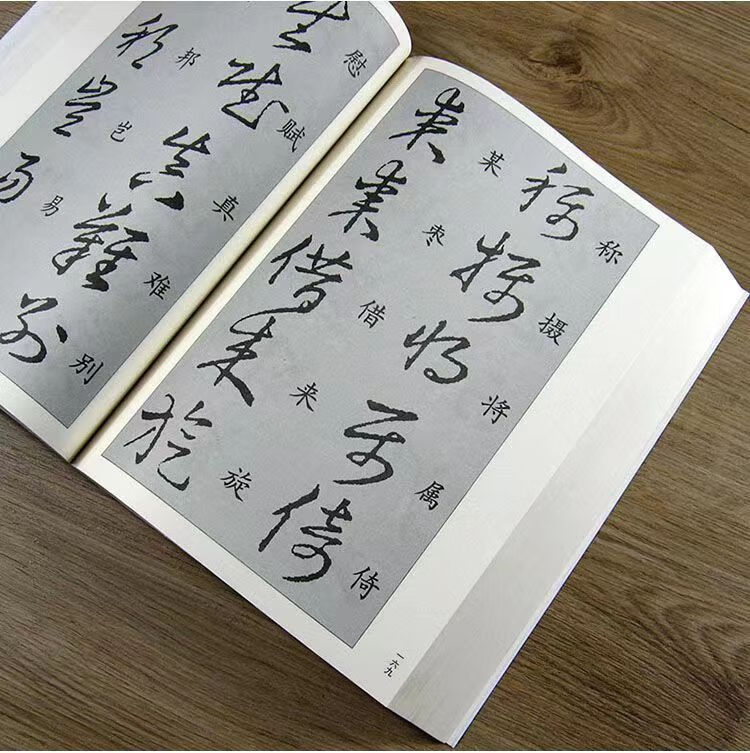 称摄将属倚
某枣借来旋
一六九
慰赋真难别
邦岂易